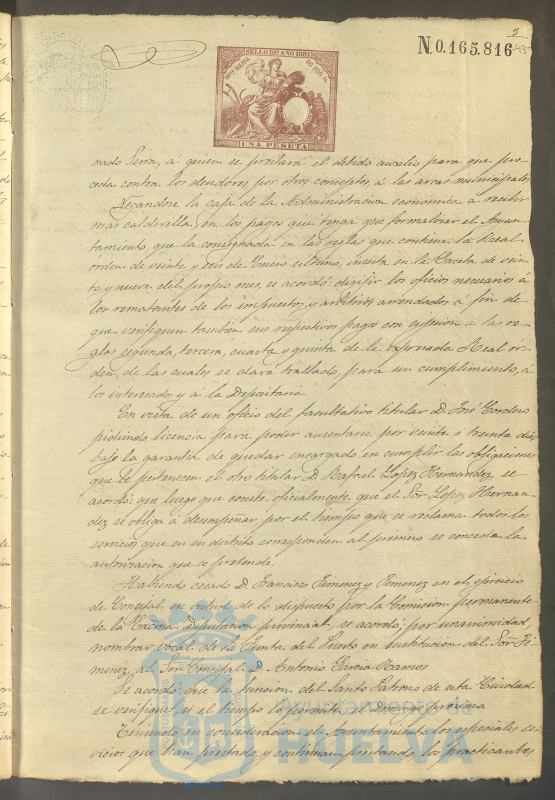 3
43
N.0.165.816
SELLO 10º AÑO 1881
UNA PESETA
nado Serra, á quien se prestará el debido auxilio para que pro
ceda contra los deudores, por otros conceptos, á las arcas municipales.
Negandose la caja de la Administracion economica á recibir
mas calderilla, en los pagos que tenga que formalizar el Ayun-
tamiento, que la consignada en las reglas que contiene la Real
orden de veinte y seis de Enero ultimo, inserta en la Gaceta de vein
te y nueve del propio mes, se acordó: dirijir los oficios necesarios á
los rematantes de los impuestos y arbitrios arrendados, á fin de
que verifiquen tambien sus respectivos pagos con sujecion á las re
glas segunda, tercera, cuarta y quinta de la expresada Real or
den, de las cuales se dará traslado, para su cumplimiento, á
los interesados y á la Depositaria.
En vista de un oficio del facultativo titular D. José Cordero
pidiendo licencia para poder ausentarse por veinte ó treinta dias
bajo la garantia de quedar encargado en cumplir las obligaciones
que le pertenecen el otro titular D. Rafael Lopez Hernandez, se
acordó: que luego que conste, oficialmente, que el Sor Lopez Hernan
dez se obliga á desempeñar por el tiempo que se reclama todos los
servicios que en su distrito corresponden al primero se conceda la
autorizacion que se pretende.
Habiendo cesado D. Francisco Jimenez y Jimenez en el ejercicio
de Concejal en virtud de lo dispuesto por la Comision permanente
de la Excma Diputacion provincial, se acordó: por unanimidad,
nombrar vocal de la Junta del Puerto en sustitucion del Sor Ji
menez, al Sor Concejal D. Antonio Garcia Ramos.
Se acordó: que la funcion del Santo Patrono de esta Ciudad
se verifique si el tiempo lo permite el Domingo próximo.
Teniendo en consideracion el Ayuntamiento los especiales ser
vicios que han prestado, y continuan prestando, los practicantes
Ayuntamiento de
HUELVA